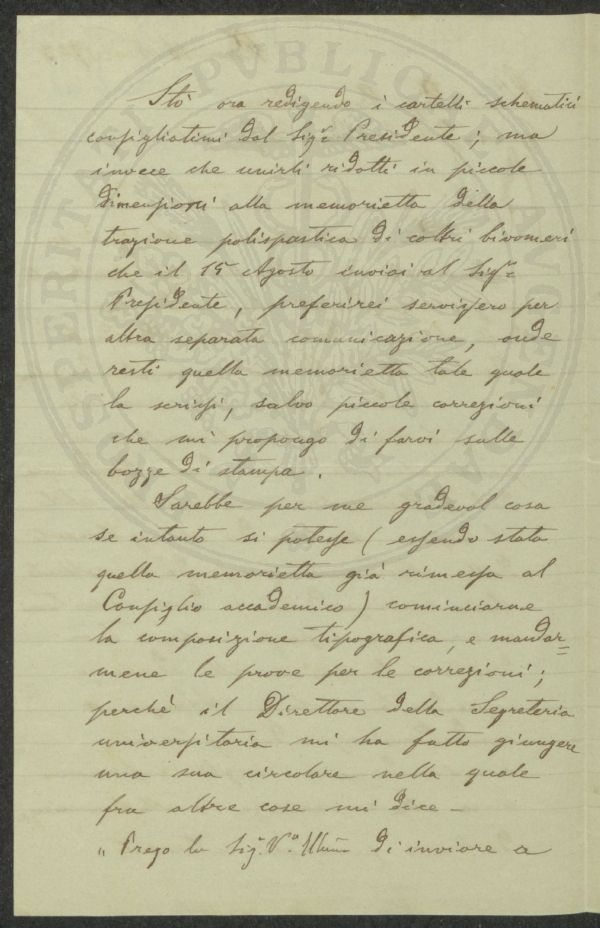 Stò ora redigendo i cartelli schematici
consigliatimi dal Sigr Presidente; ma
invece che unirli ridotti in piccole
dimensioni alla memorietta della
trazione polispastica di coltri bivomeri
che il 15 Agosto inviai al Sigr
Presidente, preferirei servissero per
altra separata comunicazione, onde
resti quella memorietta tale quale
la scrissi, salvo piccole correzioni
che mi propongo di farvi sulle
bozze di stampa.
Sarebbe per me gradevol cosa
se intanto si potesse (essendo stata
quella memorietta già rimessa al
Consiglio accademico) cominciarne
la composizione tipografica, e mandar=
mene le prove per le correzioni;
perchè il Direttore della Segreteria
universitaria mi ha fatto giungere
una sua circolare nella quale
fra altre cose mi dice –
„ Prego la Sig.a V.a Illma di inviare a